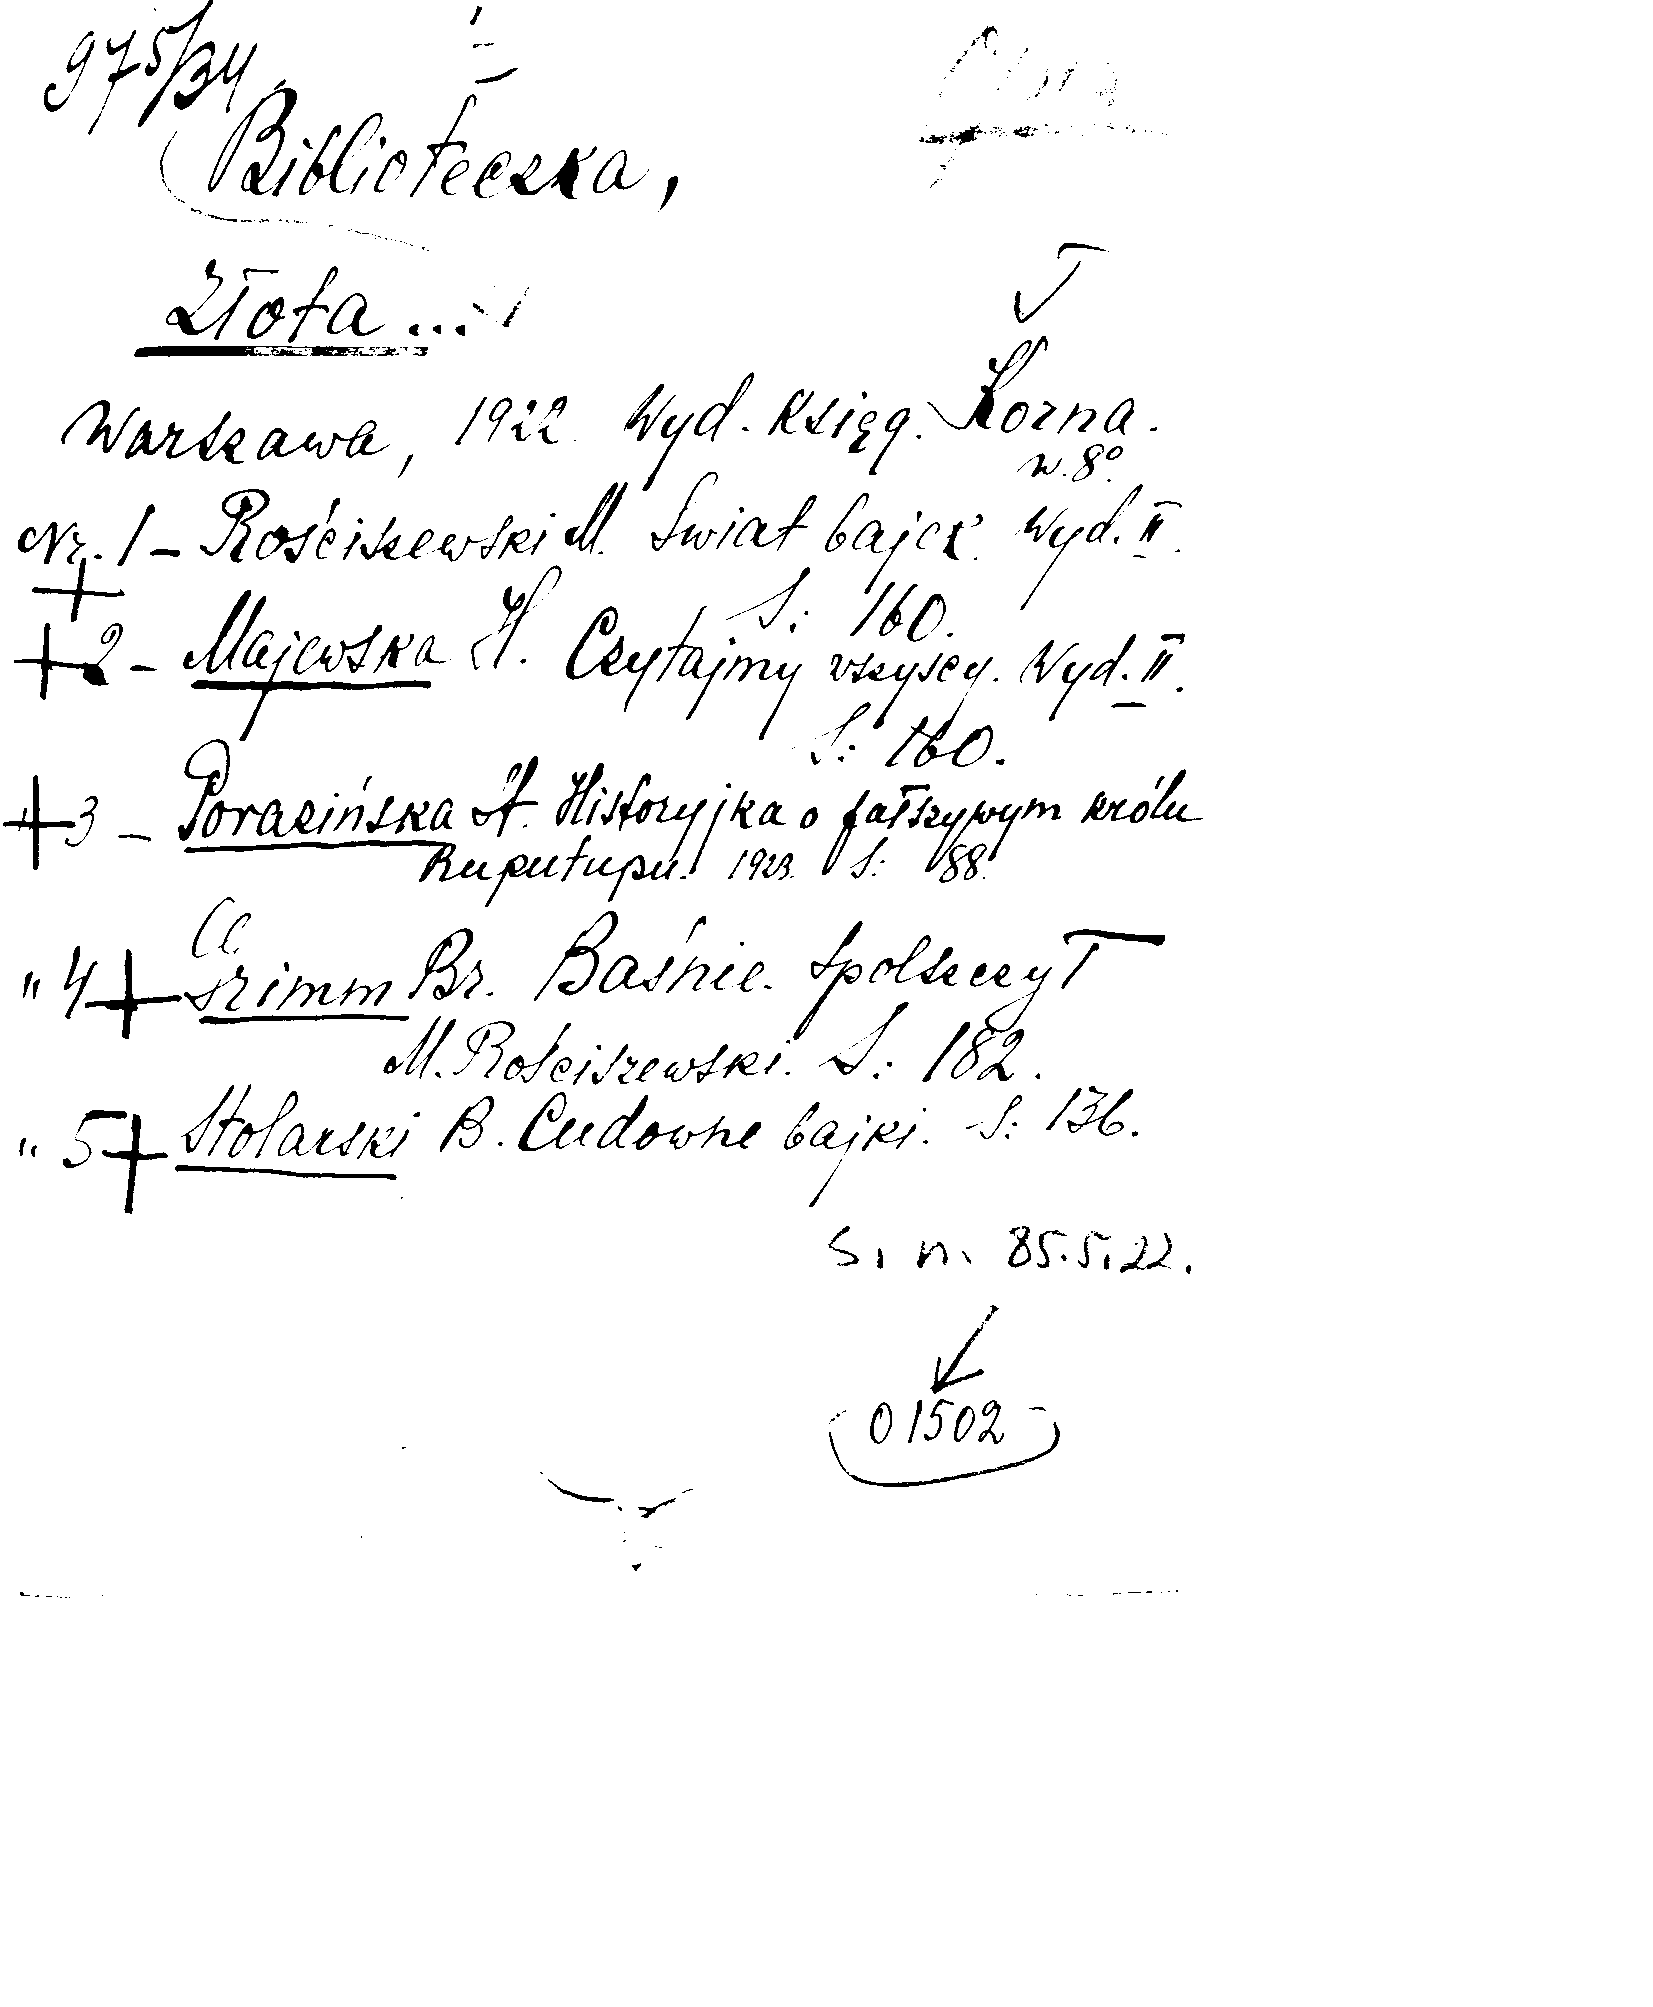 975/34
Biblioteczka,
Złota ...
Warszawa, 1922. Wyd. Księg. Korna.
w. 8°.
Nr. 1 - Rościszewski M. Świat bajek. Wyd. II.
S: 160.
2 - Majewska H. Czytajmy wszyscy. Wyd. II.
S: 160.
" 3 - Porazińska A. Historyjka o fałszywym królu
Ruputupu. 1923. S: 88.
" 4 Grimm Br. Baśnie. Spolszczył
M. Rościszewski. S: 182.
" 5 Stolarski B. Cudowne bajki. S: 136.
S. n. 85.5.22.
01502